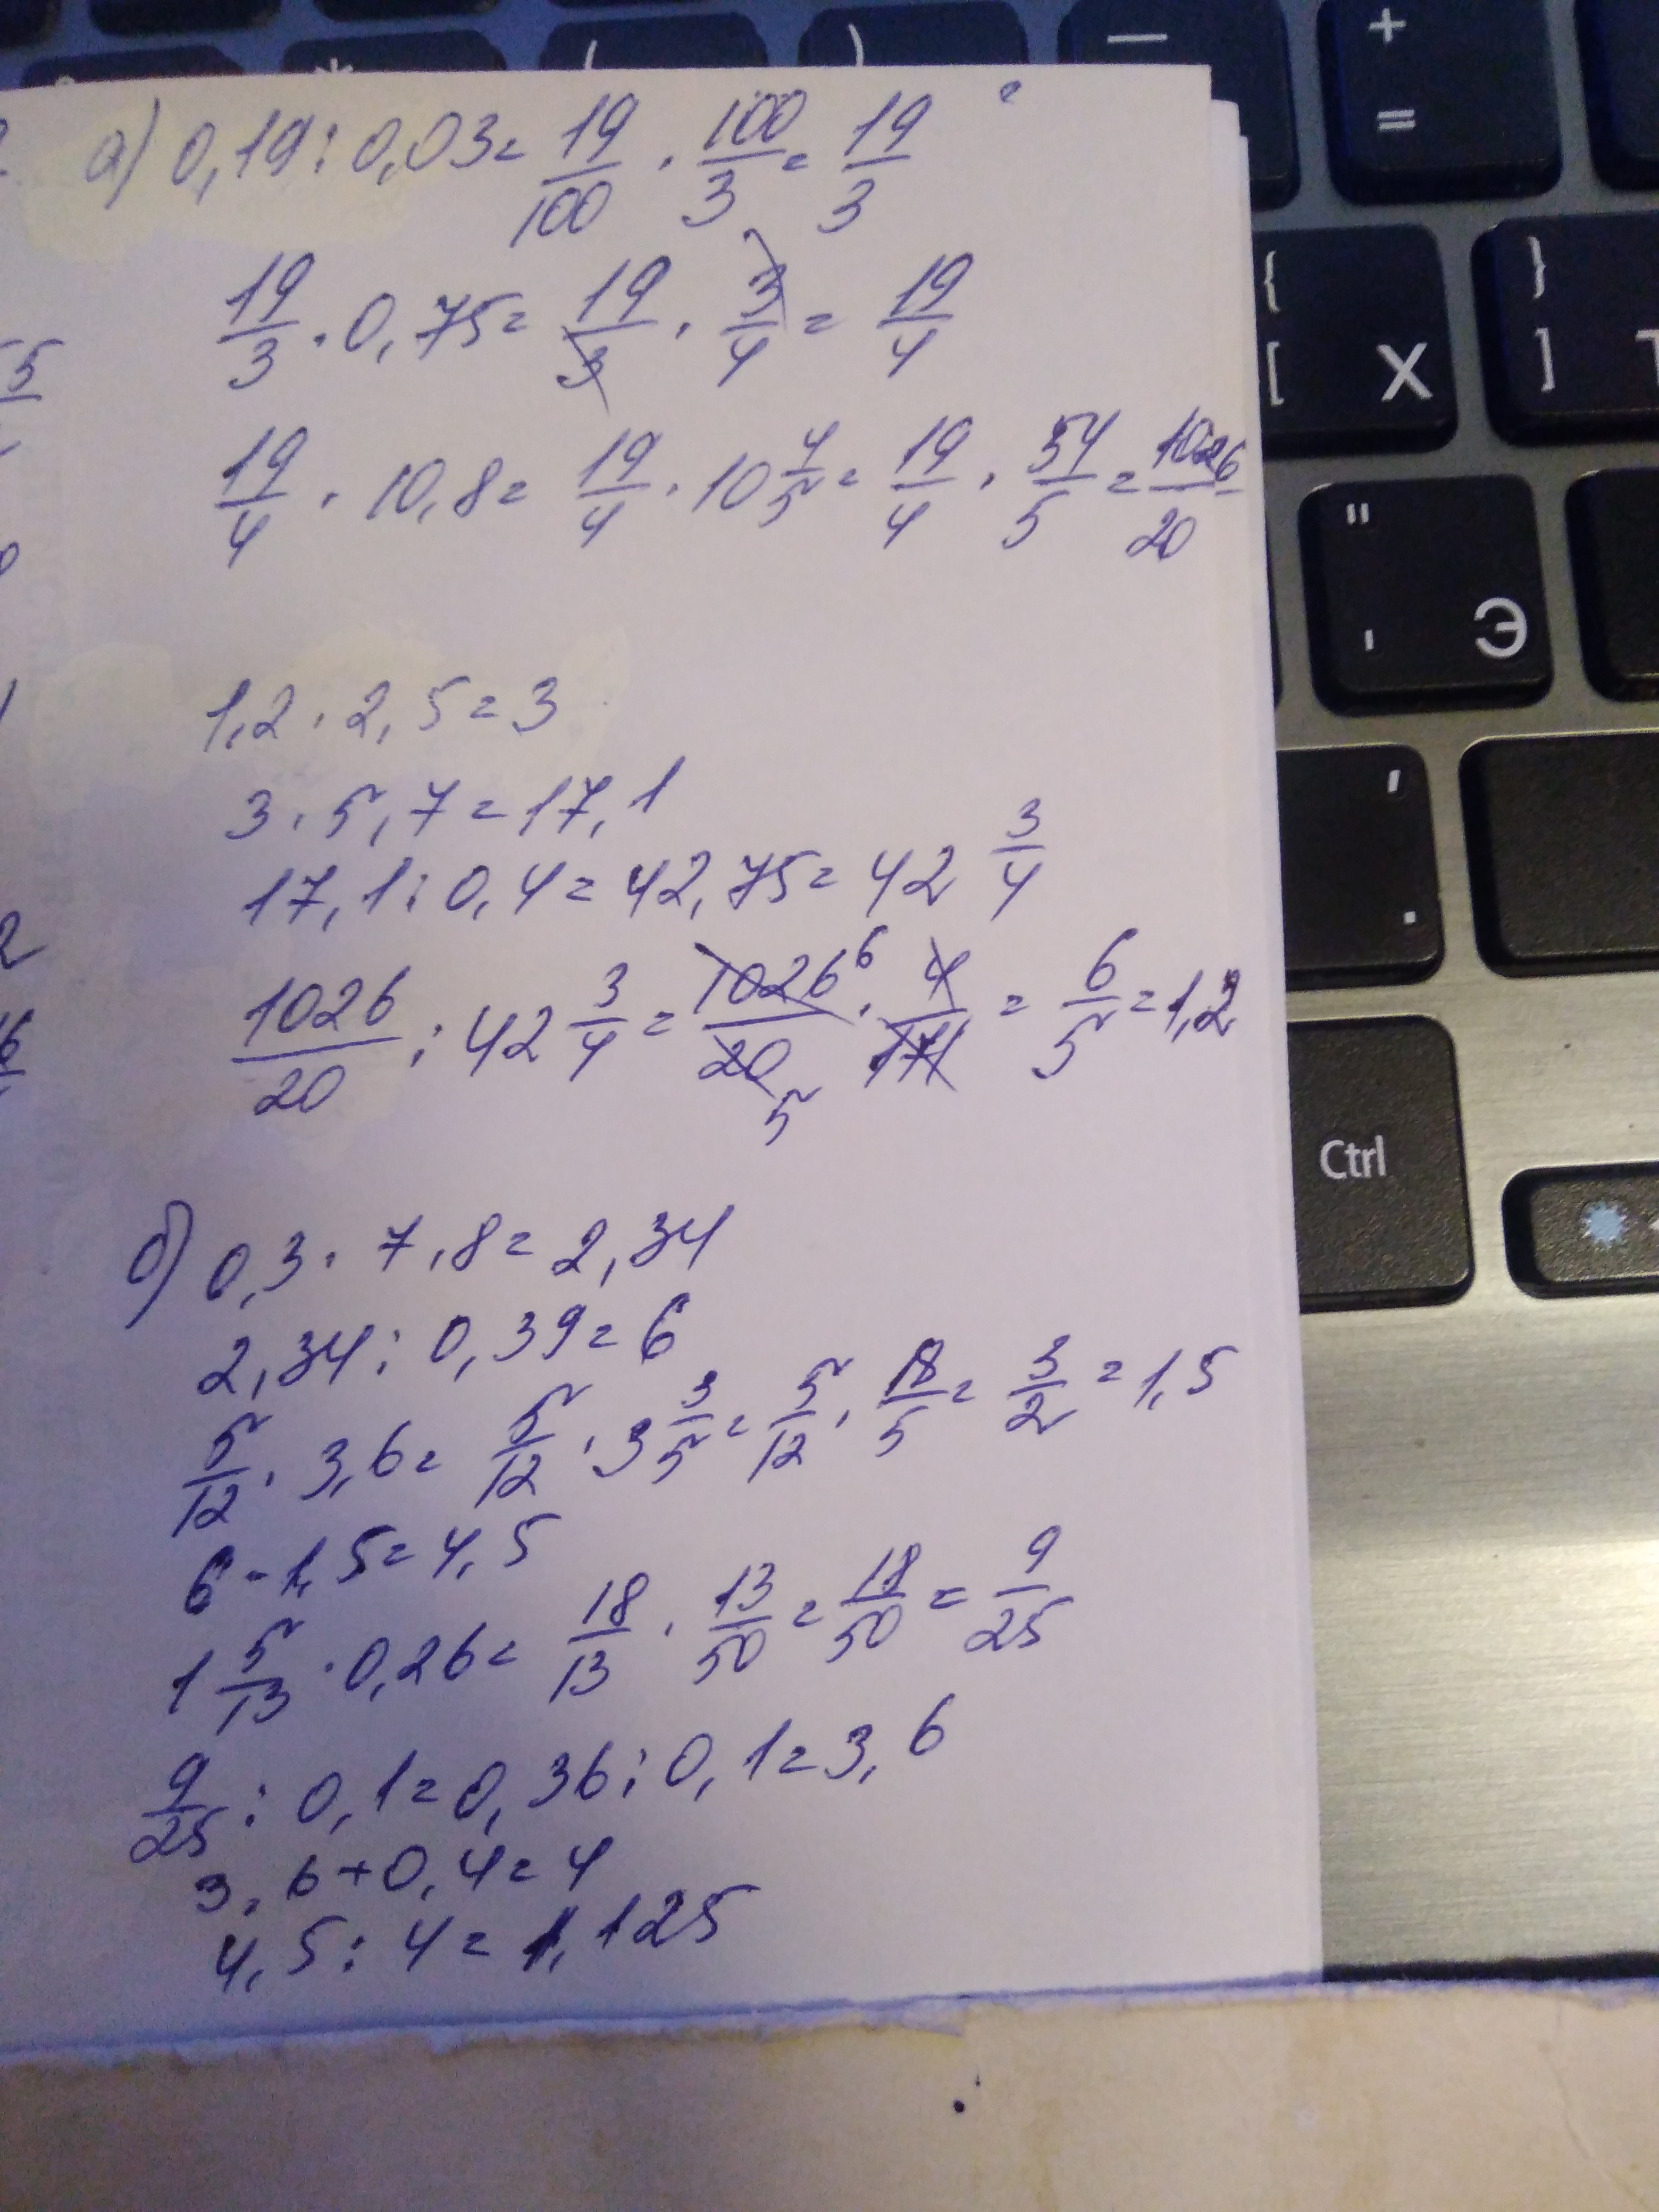 * ( ) — +
=
а) 0,19 : 0,03 = 19/100 · 100/3 = 19/3
19/3 · 0,75 = 19/3 · 3/4 = 19/4
19/4 · 10,8 = 19/4 · 10 4/5 = 19/4 · 54/5 = 1026/20
1,2 · 2,5 = 3
3 · 5,7 = 17,1
17,1 : 0,4 = 42,75 = 42 3/4
1026/20 : 42 3/4 = 1026/20 · 4/171 = 6/5 = 1,2
6
5
б) 0,3 · 7,8 = 2,34
2,34 : 0,39 = 6
5/12 · 3,6 = 5/12 · 3 3/5 = 5/12 · 18/5 = 3/2 = 1,5
6 - 1,5 = 4,5
1 5/13 · 0,26 = 18/13 · 13/50 = 18/50 = 9/25
9/25 : 0,1 = 0,36 : 0,1 = 3,6
3,6 + 0,4 = 4
4,5 : 4 = 1,125
5
2
6
{
[ Х
}
]
"
' Э
,
.
Ctrl